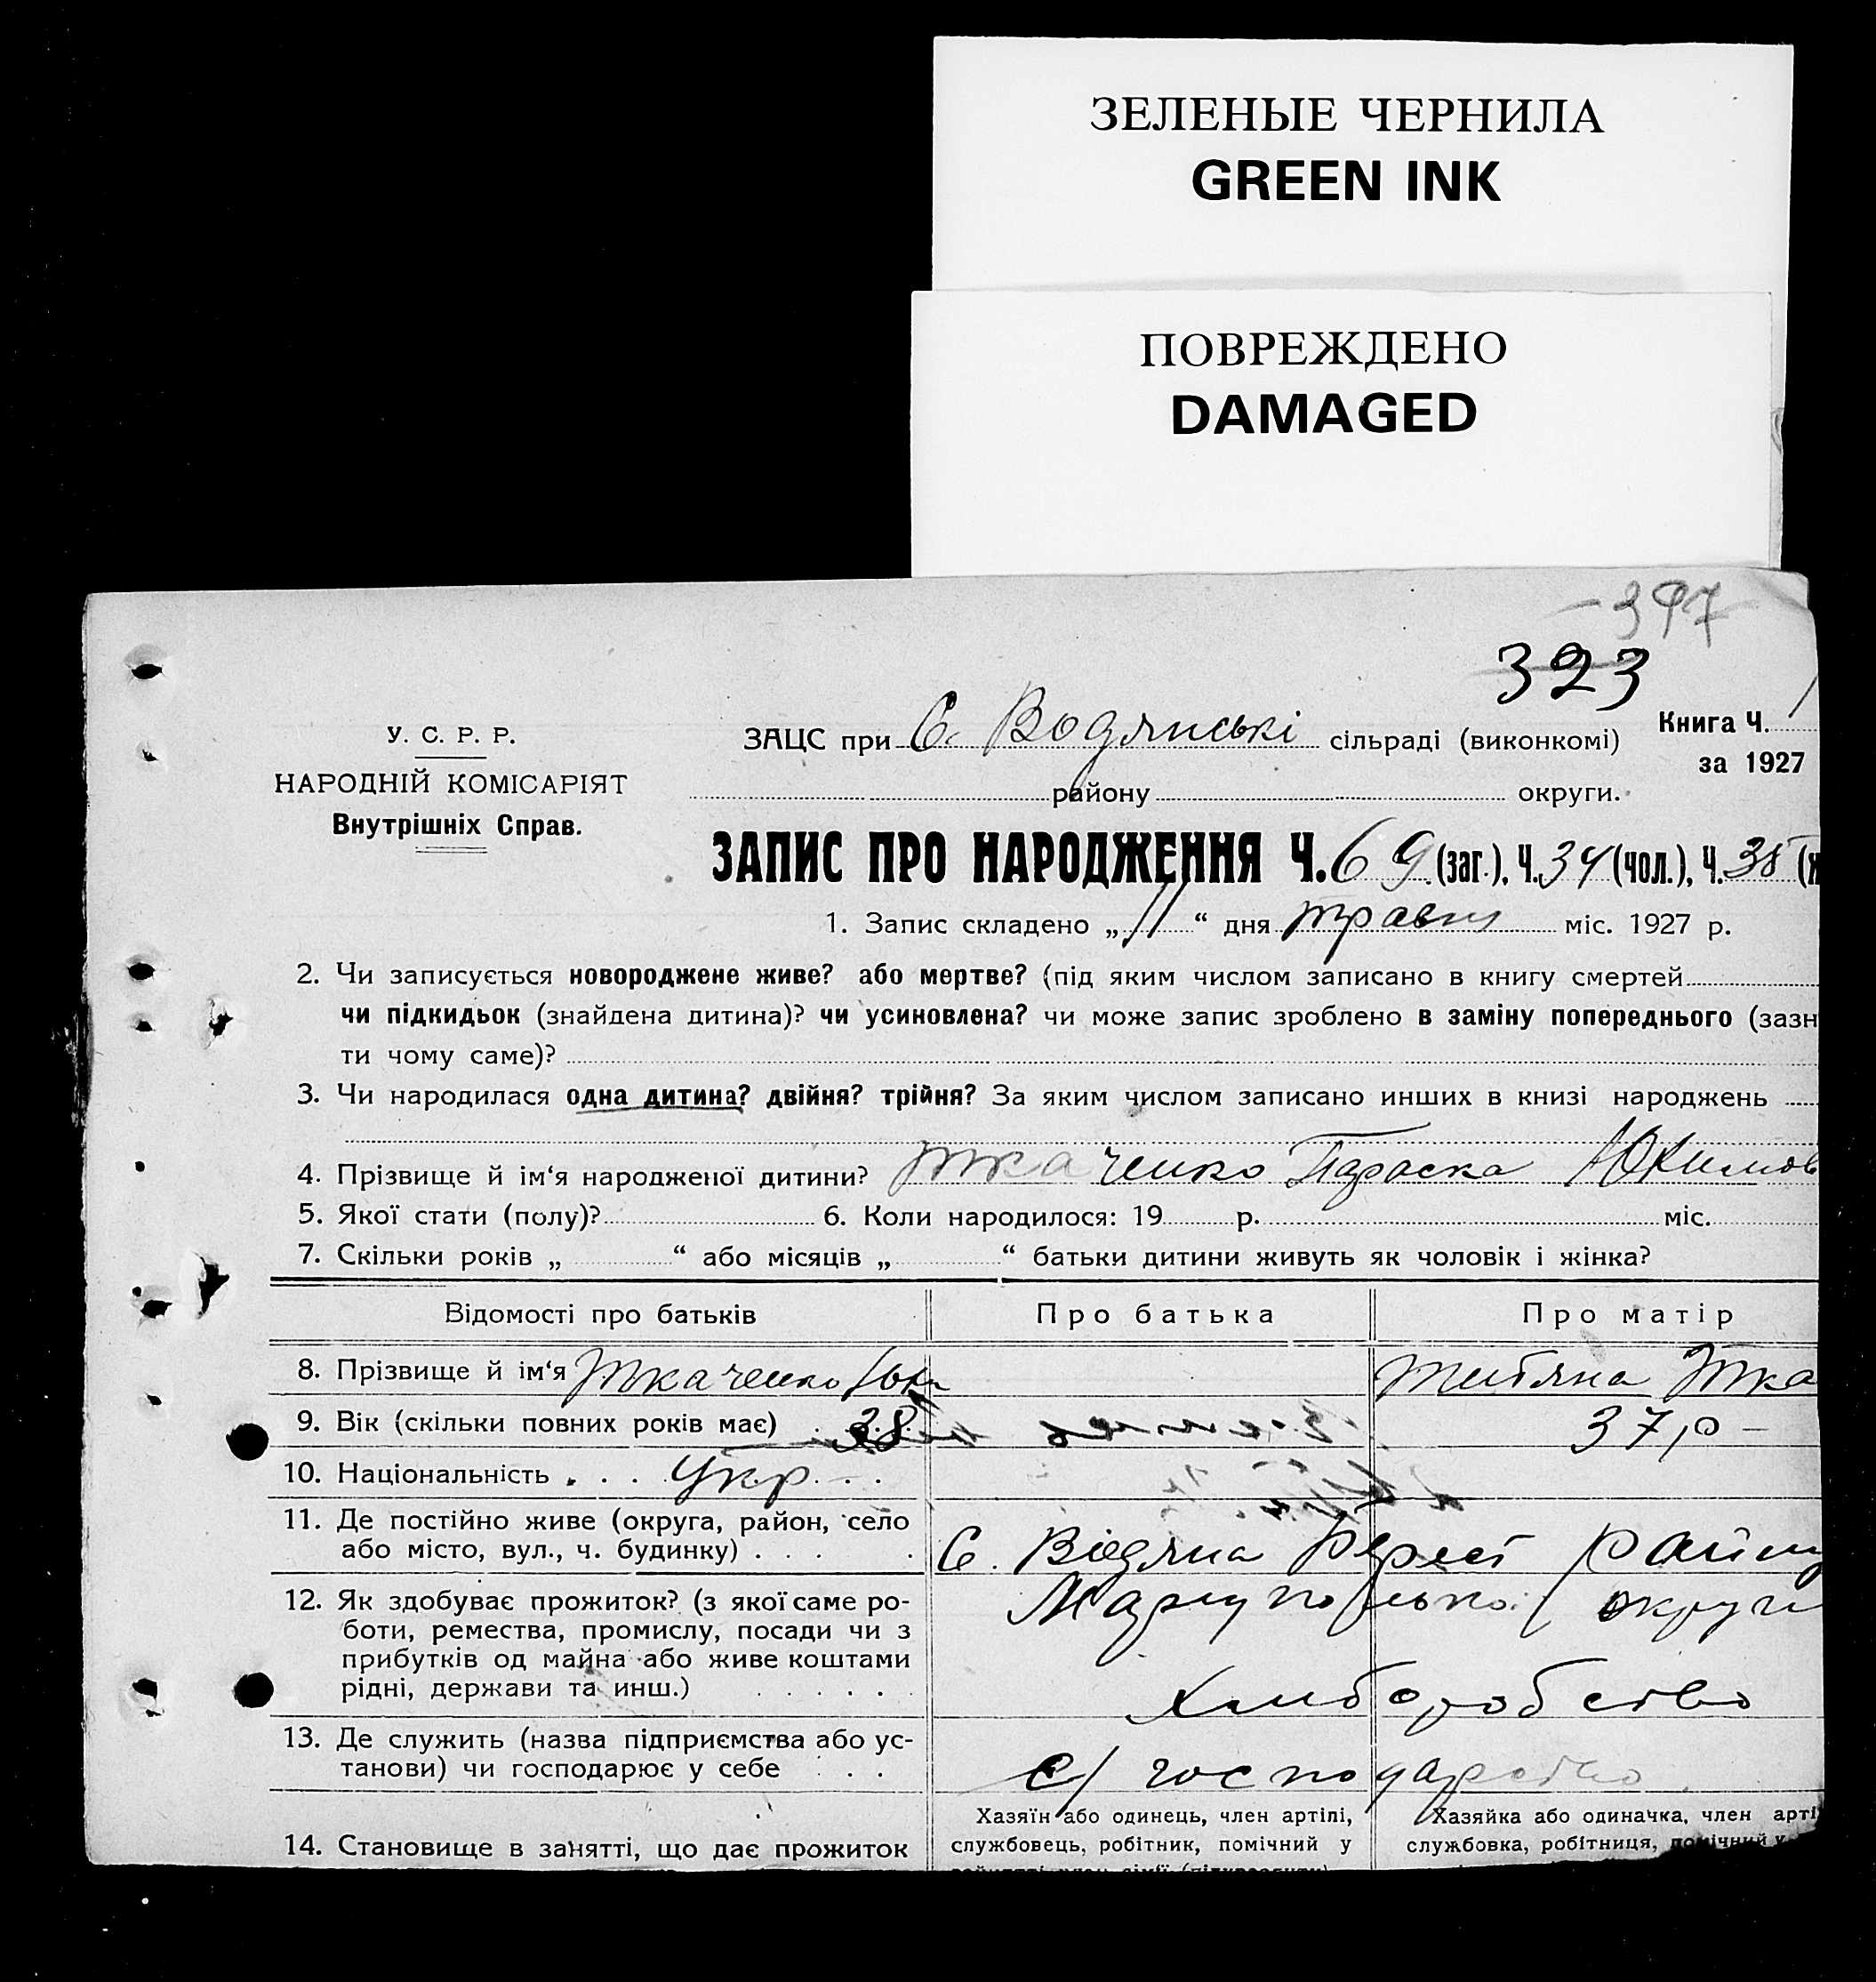 ЗЕЛЕНЫЕ ЧЕРНИЛА
GREEN INK
ПОВРЕЖДЕНО
DAMAGED
397
323
У. С. Р. Р.
НАРОДНІЙ КОМІСАРІЯТ
Внутрішніх Справ.
ЗАЦС при С. Водянські сільраді (виконкомі)
Книга Ч. 1
за 1927
району округи.
ЗАПИС ПРО НАРОДЖЕННЯ Ч. 69 (заг.), Ч. 34 (чол.), Ч. 35 (ж
1. Запис складено „ 11 “ дня травня міс. 1927 р.
2. Чи записується новороджене живе? або мертве? (під яким числом записано в книгу смертей
чи підкидьок (знайдена дитина)? чи усиновлена? чи може запис зроблено в заміну попереднього (зазн
ти чому саме)?
3. Чи народилася одна дитина? двійня? трійня? За яким числом записано инших в книзі народжень
4. Прізвище й ім‘я народженої дитини? Ткаченко Параска Юкимов
5. Якої стати (полу)? 6. Коли народилося: 19 р. міс.
7. Скільки років „ “ або місяців „ “ батьки дитини живуть як чоловік і жінка?
Відомості про батьків Про батька Про матір
8. Прізвище й ім‘я Ткаченко Тітяна Тка
9. Вік (скільки повних років має) 38 37 р
10. Національність . . . Укр . .
11. Де постійно живе (округа, район, село
або місто, вул., ч. будинку) . . . .
С. Водяна район
12. Як здобуває прожиток? (з якої саме ро-
боти, ремества, промислу, посади чи з
прибутків од майна або живе коштами
рідні, держави та инш.) . . . . . .
Маріупольської округи
Хліборобство
13. Де служить (назва підприємства або ус-
танови) чи господарює у себе . . .
с/господарство
14. Становище в занятті, що дає прожиток
Хазяїн або одинець, член артілі,
службовець, робітник, помічний у
Хазяйка або одиначка, член арті
службовка, робітниця, помічний у